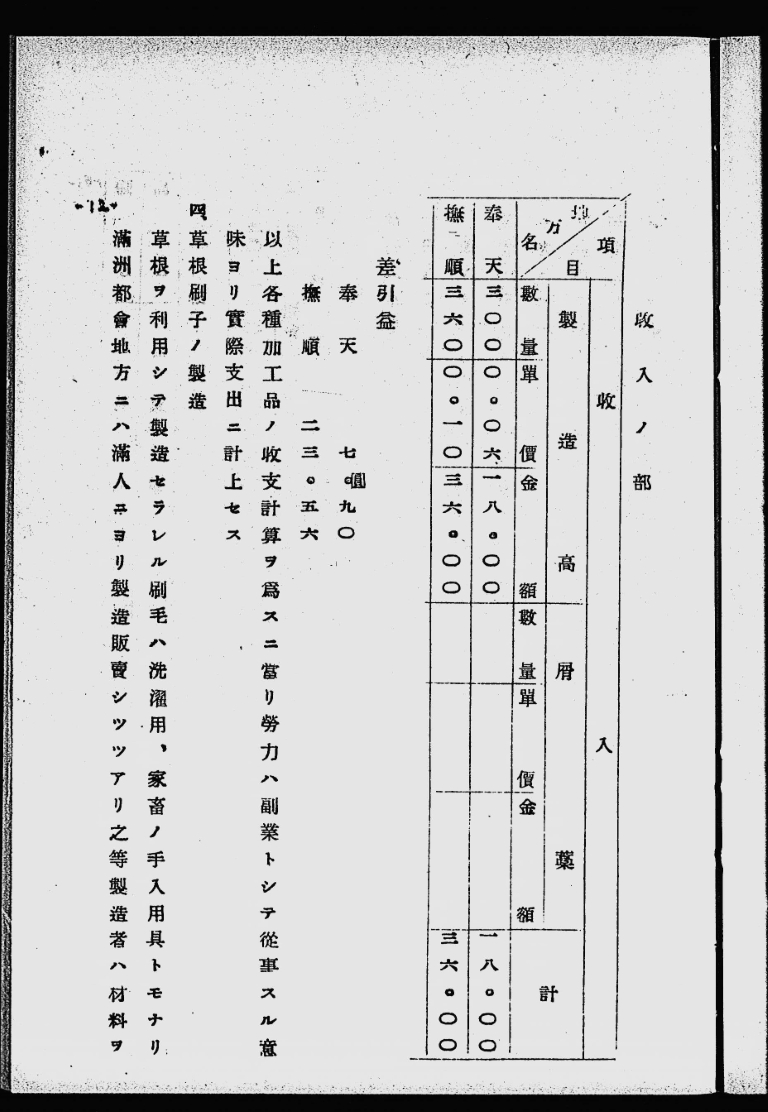 收入ノ部
項目 地方名
收入
製造高 屑藁 計
數量 單價 金額 數量 單價 金額
奉天 三〇〇 〇。〇六 一八。〇〇 一八。〇〇
撫順 三六〇 〇。一〇 三六。〇〇 三六。〇〇
差引益
奉天 七圓。九〇
撫順 二三。五六
以上各種加工品ノ收支計算ヲ爲スニ當リ勞力ハ副業トシテ從事スル意
味ヨリ實際支出ニ計上セス
四、草根刷子ノ製造
草根ヲ利用シテ製造セラレル刷毛ハ洗濯用、家畜ノ手入用具トモナリ
滿洲都會地方ニハ滿人ニヨリ製造販賣シツツアリ之等製造者ハ材料ヲ
-12-